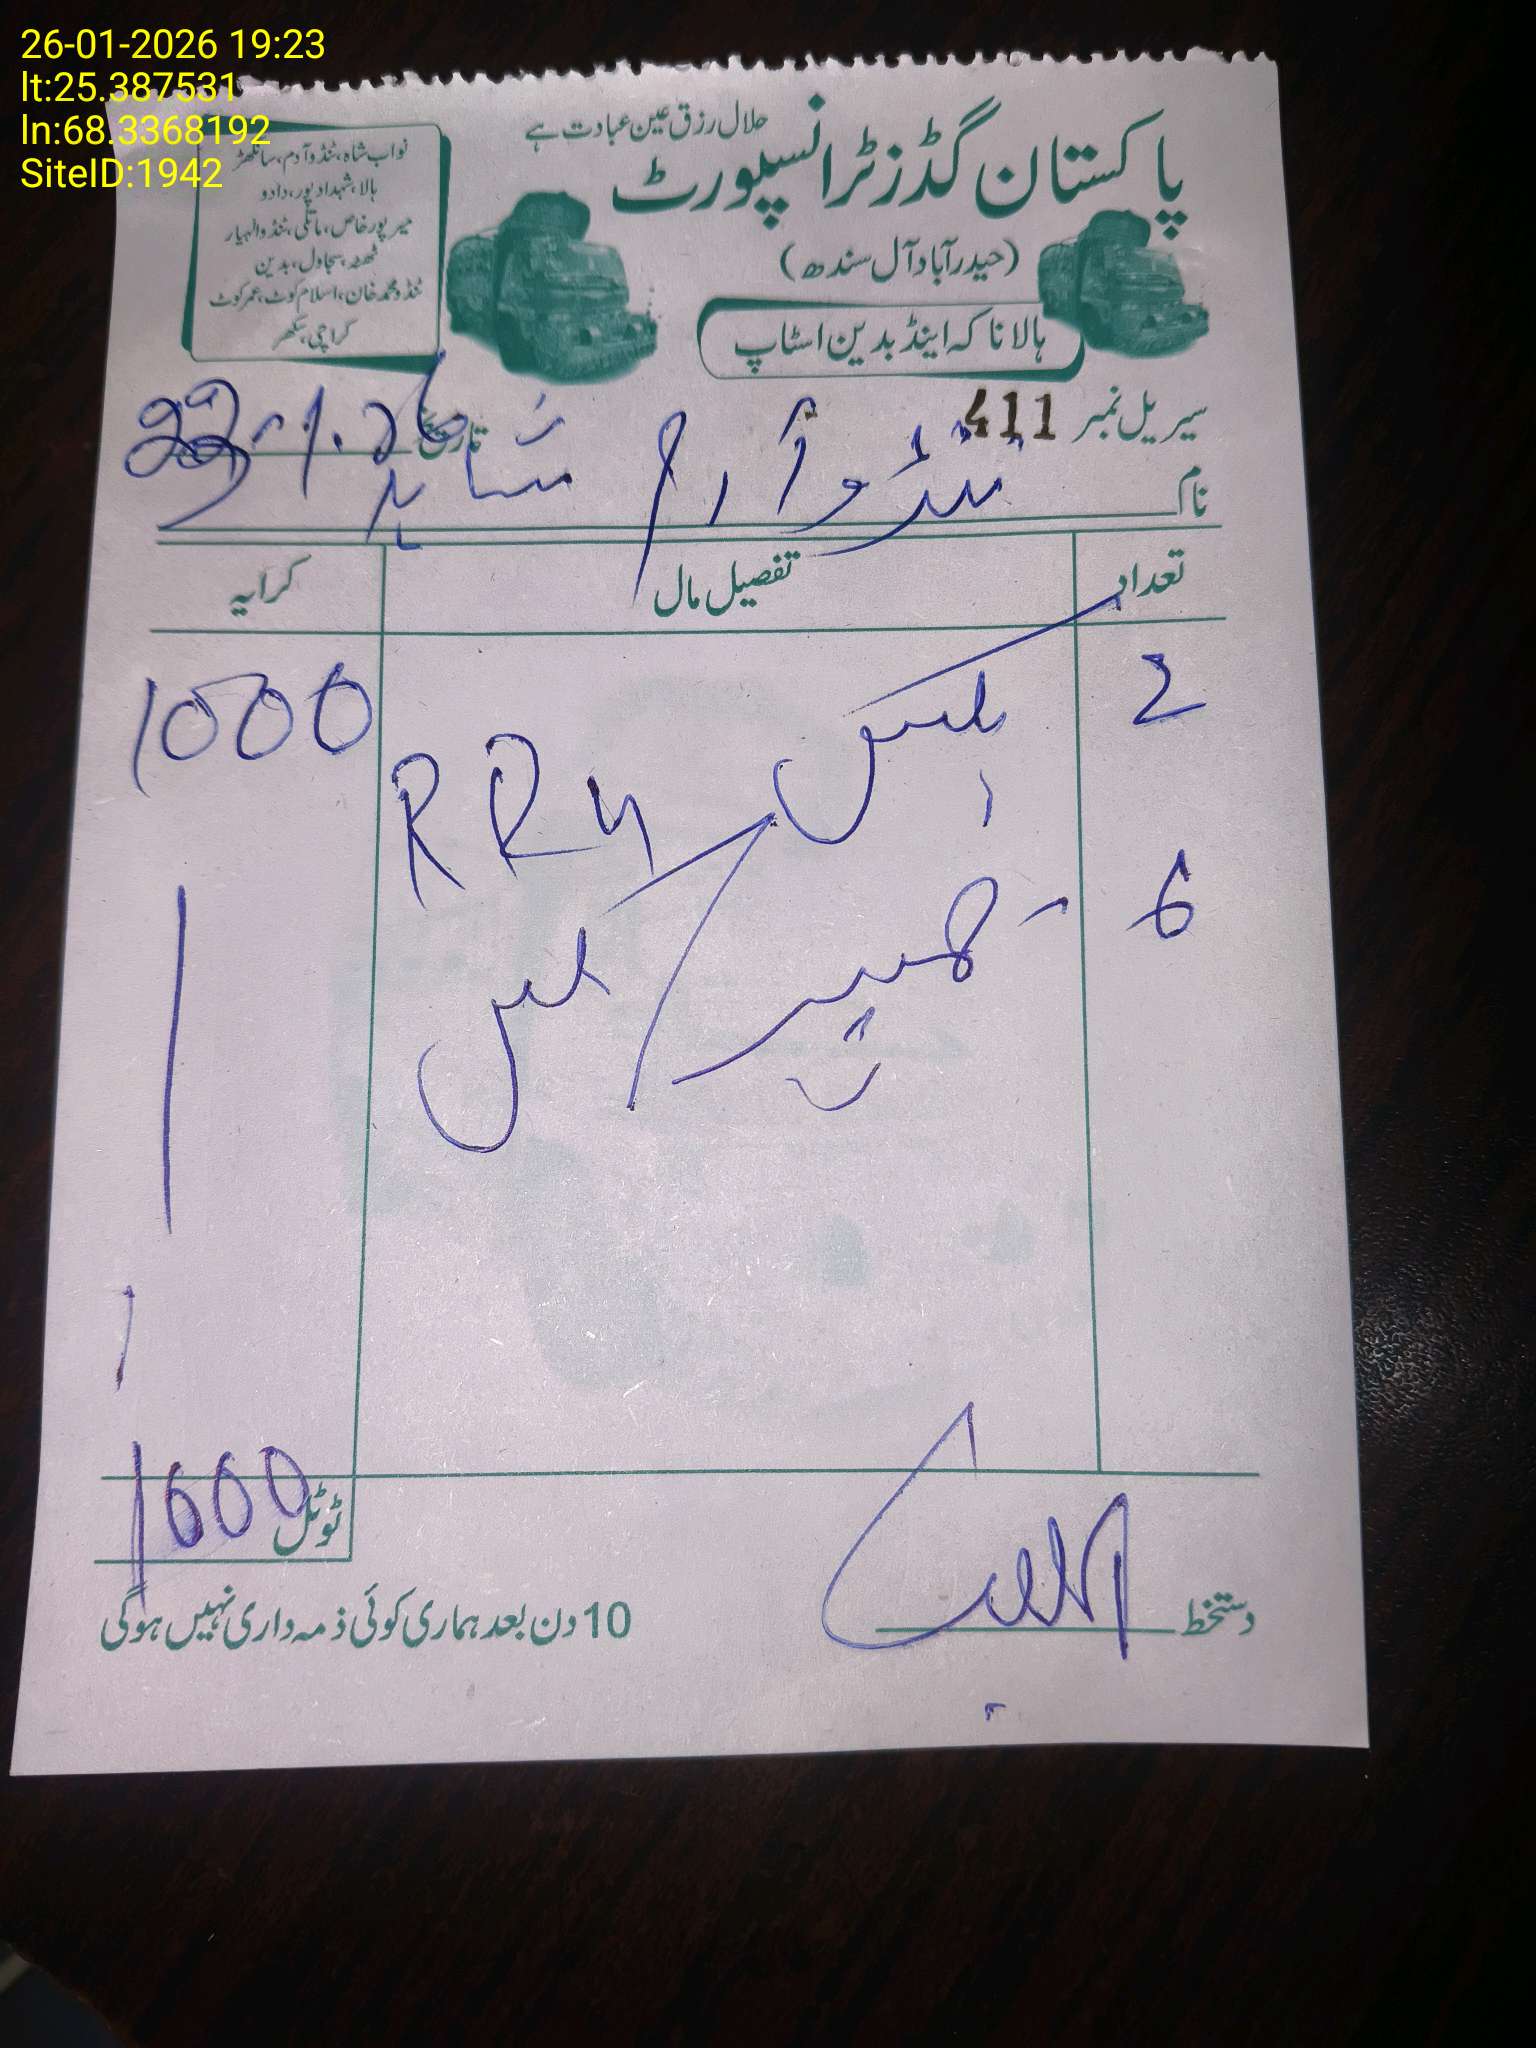 26-01-2026 19:23
lt:25.387531
ln:68.3368192
SiteID:1942
حلال رزق عین عبادت ہے
پاکستان گڈز ٹرانسپورٹ
(حیدرآباد آل سندھ)
ہالا ناکہ اینڈ بدین اسٹاپ
نواب شاہ، ٹنڈو آدم، سانگھڑ
ہالا، شہداد پور، دادو
میرپور خاص، ماتلی، ٹنڈوالہیار
ٹھٹھہ، سجاول، بدین
ٹنڈو محمد خان، اسلام کوٹ، عمرکوٹ
کراچی، سکھر
سیریل نمبر 411 تاریخ
نام ٹنڈو آدم
تعداد تفصیل مال کرایہ
2 بکس RR4 1000
6
ٹوٹل 1000
دستخط
10 دن بعد ہماری کوئی ذمہ داری نہیں ہوگی